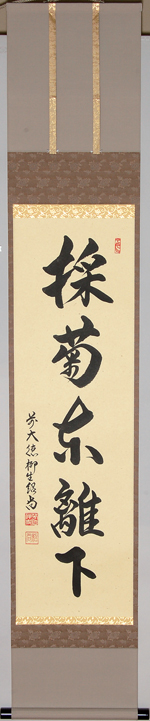 採菊東離下
前大徳柳生紹尚